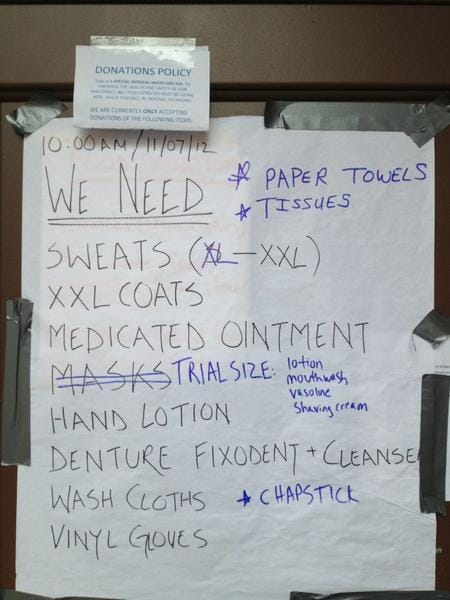 DONATIONS POLICY
THIS IS A SPECIAL MEDICAL NEEDS SHELTER. TO
PRESERVE THE HEALTH AND SAFETY OF OUR
SHELTEREES, ALL ITEMS DONATED MUST BE CLEAN,
NEW, AND IF POSSIBLE, IN ORIGINAL PACKAGING.
WE ARE CURRENTLY ONLY ACCEPTING
DONATIONS OF THE FOLLOWING ITEMS:
10:00AM/11/07/12
WE NEED
PAPER TOWELS
TISSUES
SWEATS (XL-XXL)
XXL COATS
MEDICATED OINTMENT
MASKS TRIAL SIZE: lotion
mouthwash
vasoline
shaving cream
HAND LOTION
DENTURE FIXODENT + CLEANSE
WASH CLOTHS CHAPSTICK
VINYL GLOVES